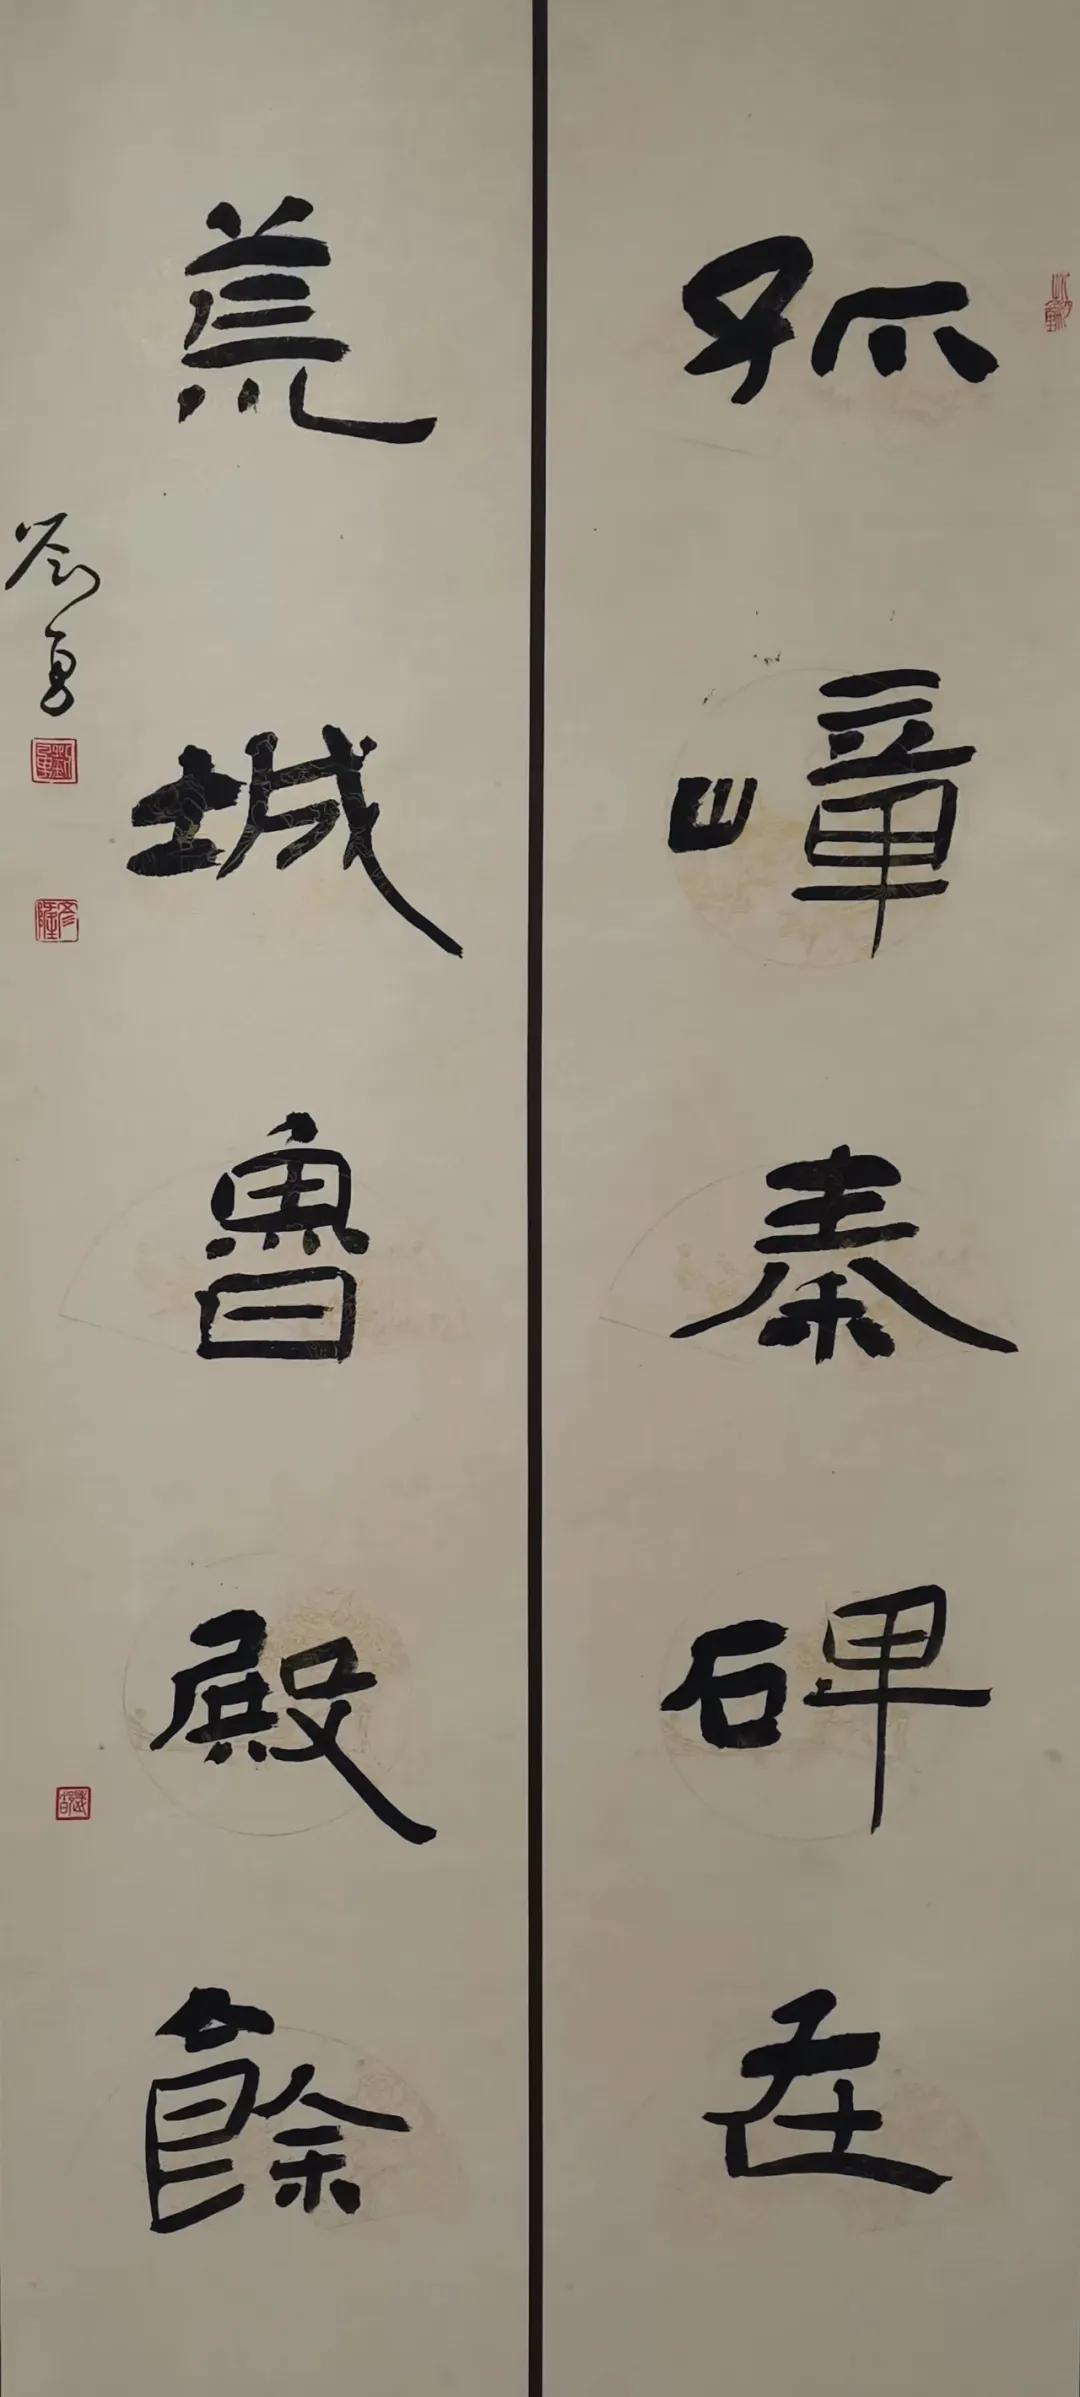 孤嶂秦碑在
荒城魯殿餘
劉勇